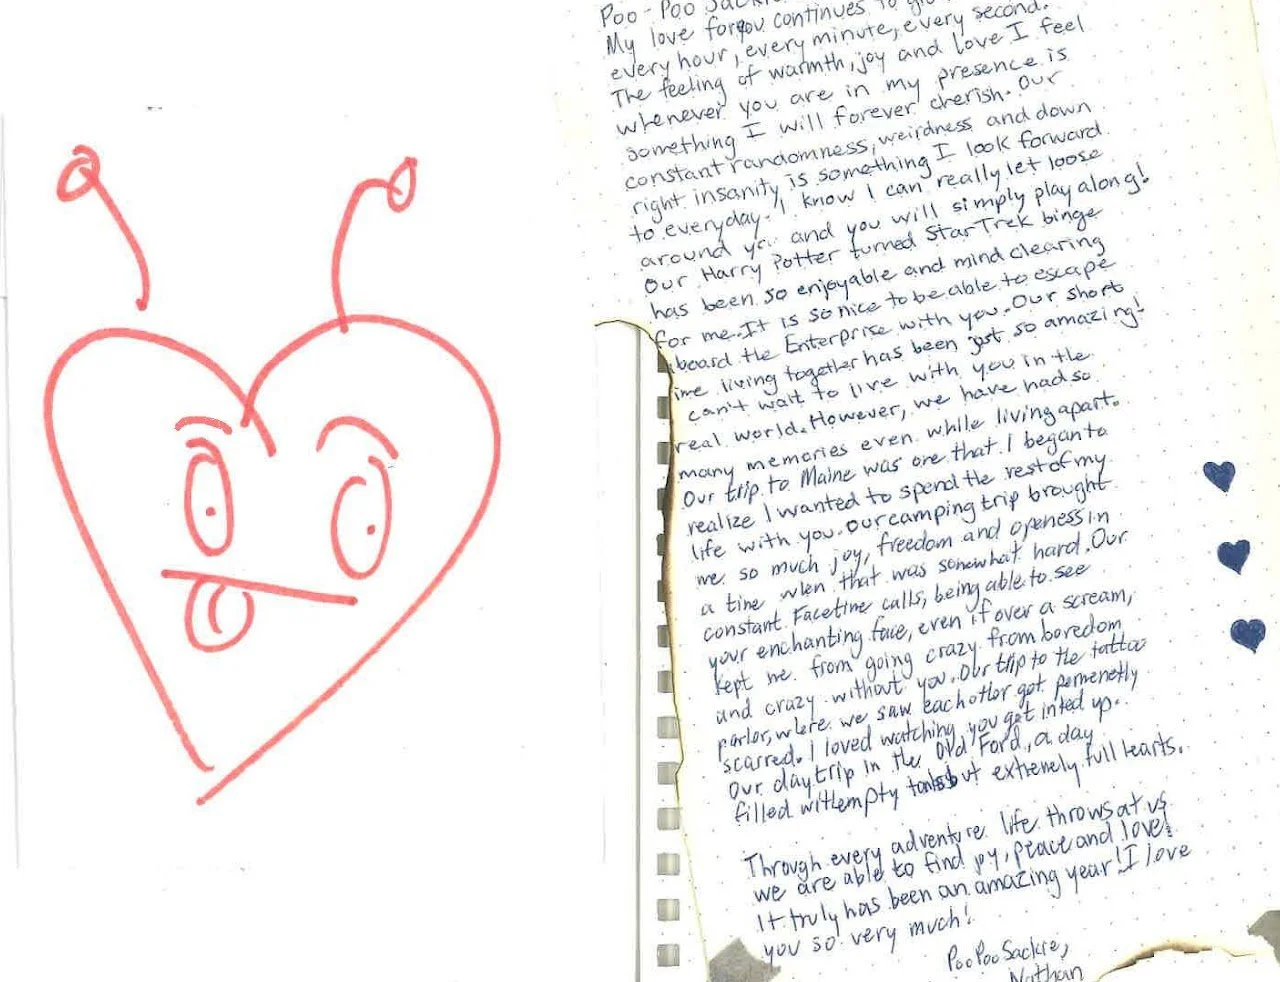 Poo-Poo Sackie
My love for you continues to
every hour, every minute, every second.
The feeling of warmth, joy and love I feel
whenever you are in my presence is
something I will forever cherish. Our
constant randomness, weirdness and down
right insanity is something I look forward
to everyday. I know I can really let loose
around you and you will simply play along!
Our Harry Potter turned Star Trek binge
has been so enjoyable and mind clearing
for me. It is so nice to be able to escape
board the Enterprise with you. Our short
ime living together has been just so amazing!
can't wait to live with you in the
real world. However, we have had so
many memories even while living apart.
Our trip to Maine was one that I began to
realize I wanted to spend the rest of my
life with you. Our camping trip brought
me so much joy, freedom and openess in
a time when that was somewhat hard. Our
constant Facetime calls, being able to see
your enchanting face, even if over a scream,
kept me from going crazy from boredom
and crazy without you. Our trip to the tattoo
parlor, where we saw eachother get permenetly
scarred. I loved watching you get inked up.
Our day trip in the Old Ford, a day
filled with empty tanks but extremely full hearts.
Through every adventure life throws at us
we are able to find joy, peace and love!
It truly has been an amazing year! I love
you so very much!
Poo Poo Sackie,
Nathan